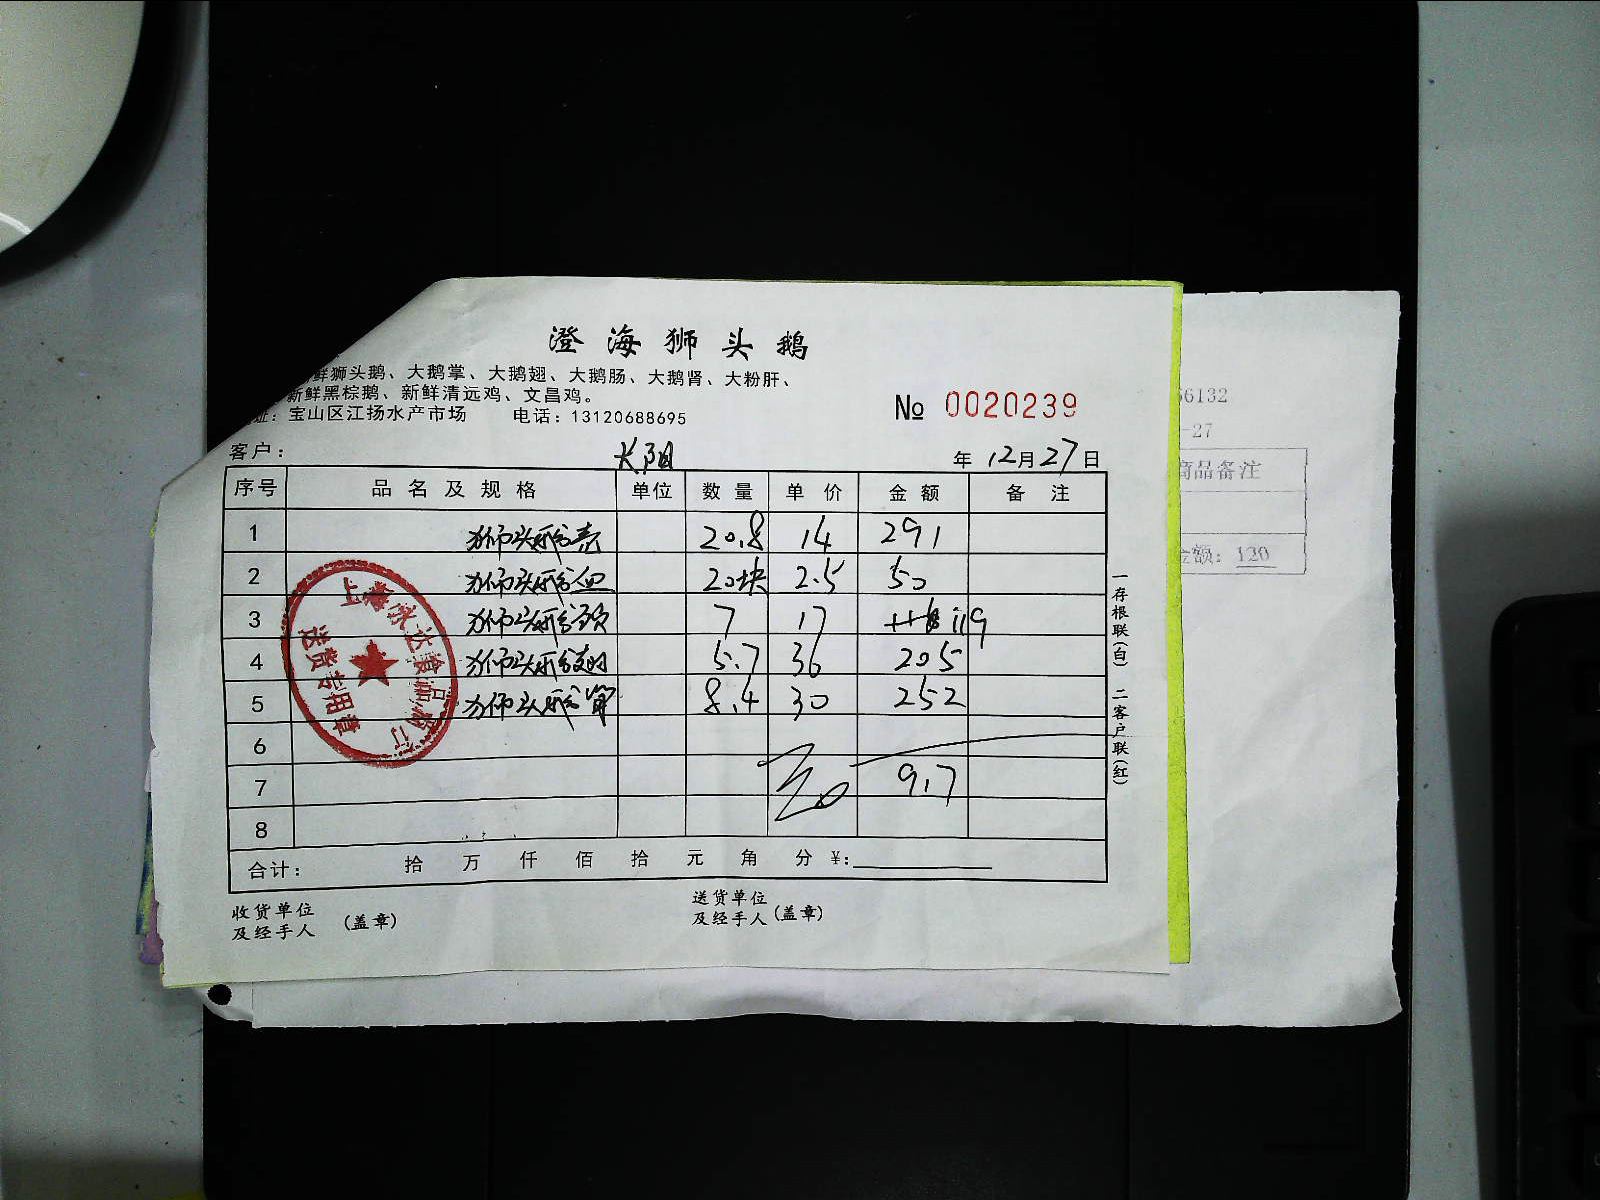 澄海狮头鹅
鲜狮头鹅、大鹅掌、大鹅翅、大鹅肠、大鹅肾、大粉肝、
新鲜黑棕鹅、新鲜清远鸡、文昌鸡。
址：宝山区江扬水产市场 电话：13120688695
№ 0020239
客户： 长阳 年 12月27日
序号 品名及规格 单位 数量 单价 金额 备注
1 狮头鹅壳 20.8 14 291
2 狮头鹅血 20块 2.5 50
3 狮头鹅颈 7 17 119
4 狮头鹅 5.7 36 205
5 狮头鹅 8.4 30 252
6
7 917
8
合计： 拾 万 仟 佰 拾 元 角 分 ¥：
收货单位
及经手人 （盖章）
送货单位
及经手人（盖章）
一存根联（白） 二客户联（红）
送货专用章
66132
-27
商品备注
金额：120